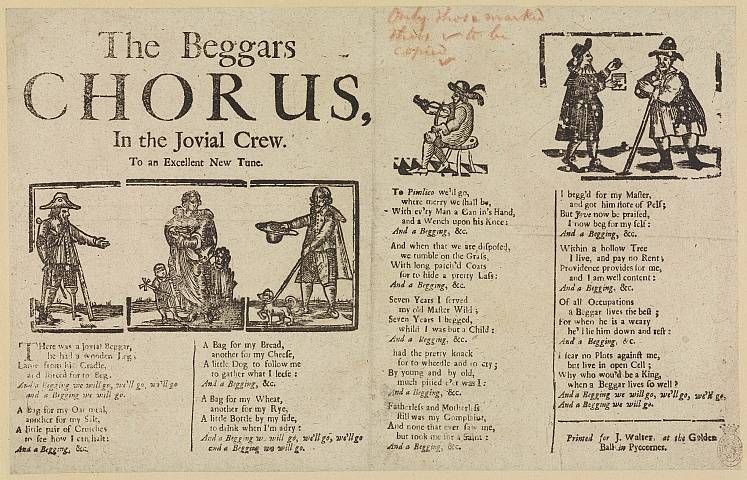 The Beggars
CHORUS,
In the Jovial Crew.
To an Excellent New Tune.
THere was a Jovial Beggar,
he had a wooden Leg,
Lame from his Cradle,
and forced for to Beg.
And a Begging we will go, we'll go, we'll go
and a Begging we will go.
A Bag for my Oat-meal,
another for my Salt,
A little pair of Crutches
to see how I can halt:
And a Begging, &c.
A Bag for my Bread,
another for my Cheese,
A little Dog to follow me
to gather what I leese:
And a Begging, &c.
A Bag for my Wheat,
another for my Rye,
A little Bottle by my side,
to drink when I'm adry:
And a Begging we will go, we'll go, we'll go
and a Begging we will go.
Only those marked
thus ✓ to be
copied ✓
To Pimlico we'll go,
where merry we shall be,
With ev'ry Man a Can in's Hand,
and a Wench upon his Knee:
And a Begging, &c.
And when that we are disposed,
we tumble on the Grass,
With long patch'd Coats
for to hide a pretty Lass:
And a Begging, &c.
Seven Years I served
my old Master Wild;
Seven Years I begged,
whilst I was but a Child:
And a Begging, &c.
had the pretty knack
for to wheedle and to cry;
By young and by old,
much pitied e'r was I:
And a Begging, &c.
Fatherless and Motherless
still was my Complaint,
And none that ever saw me,
but took me for a Saint:
And a Begging, &c.
I begg'd for my Master,
and got him store of Pelf;
But Jove now be praised,
I now beg for my self:
And a Begging, &c.
Within a hollow Tree
I live, and pay no Rent;
Providence provides for me,
and I am well content:
And a Begging, &c.
Of all Occupations
a Beggar lives the best;
For when he is a weary
he'll lie him down and rest:
And a Begging, &c.
I fear no Plots against me,
but live in open Cell;
Why who wou'd be a King,
when a Beggar lives so well?
And a Begging we will go, we'll go, we'll go,
And a Begging we will go.
Printed for J. Walter, at the Golden
Ball in Pyecorner.